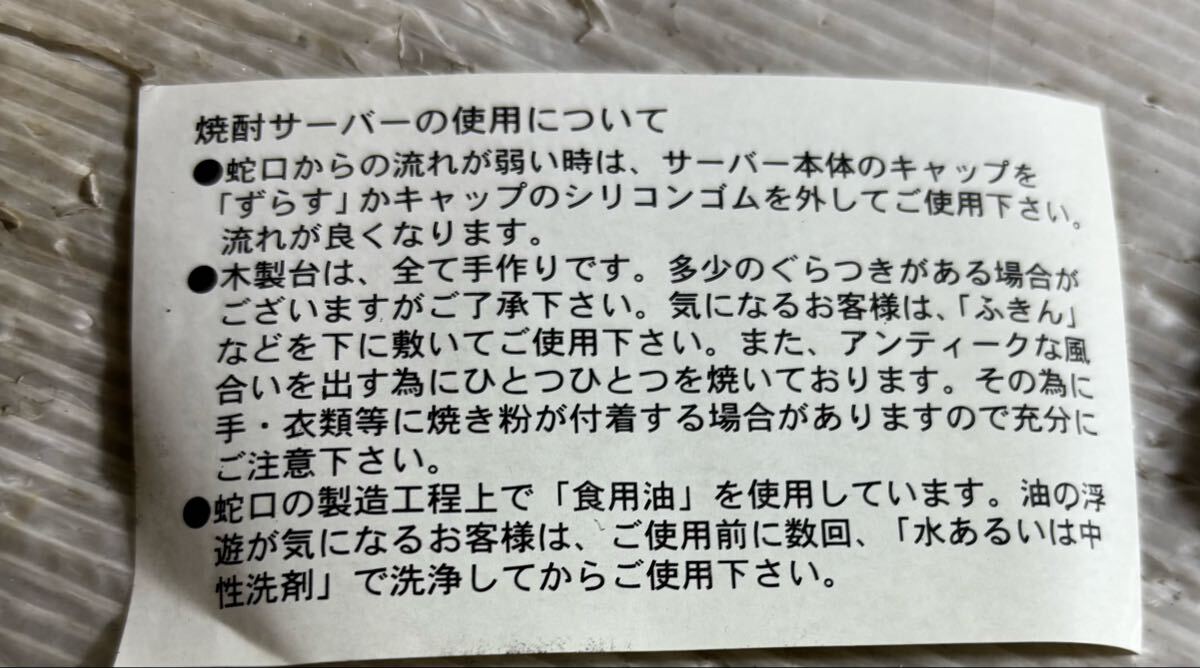 焼酎サーバーの使用について
●蛇口からの流れが弱い時は、サーバー本体のキャップを
「ずらす」かキャップのシリコンゴムを外してご使用下さい。
流れが良くなります。
●木製台は、全て手作りです。多少のぐらつきがある場合が
ございますがご了承下さい。気になるお客様は、「ふきん」
などを下に敷いてご使用下さい。また、アンティークな風
合いを出す為にひとつひとつを焼いております。その為に
手・衣類等に焼き粉が付着する場合がありますので充分に
ご注意下さい。
●蛇口の製造工程上で「食用油」を使用しています。油の浮
遊が気になるお客様は、ご使用前に数回、「水あるいは中
性洗剤」で洗浄してからご使用下さい。